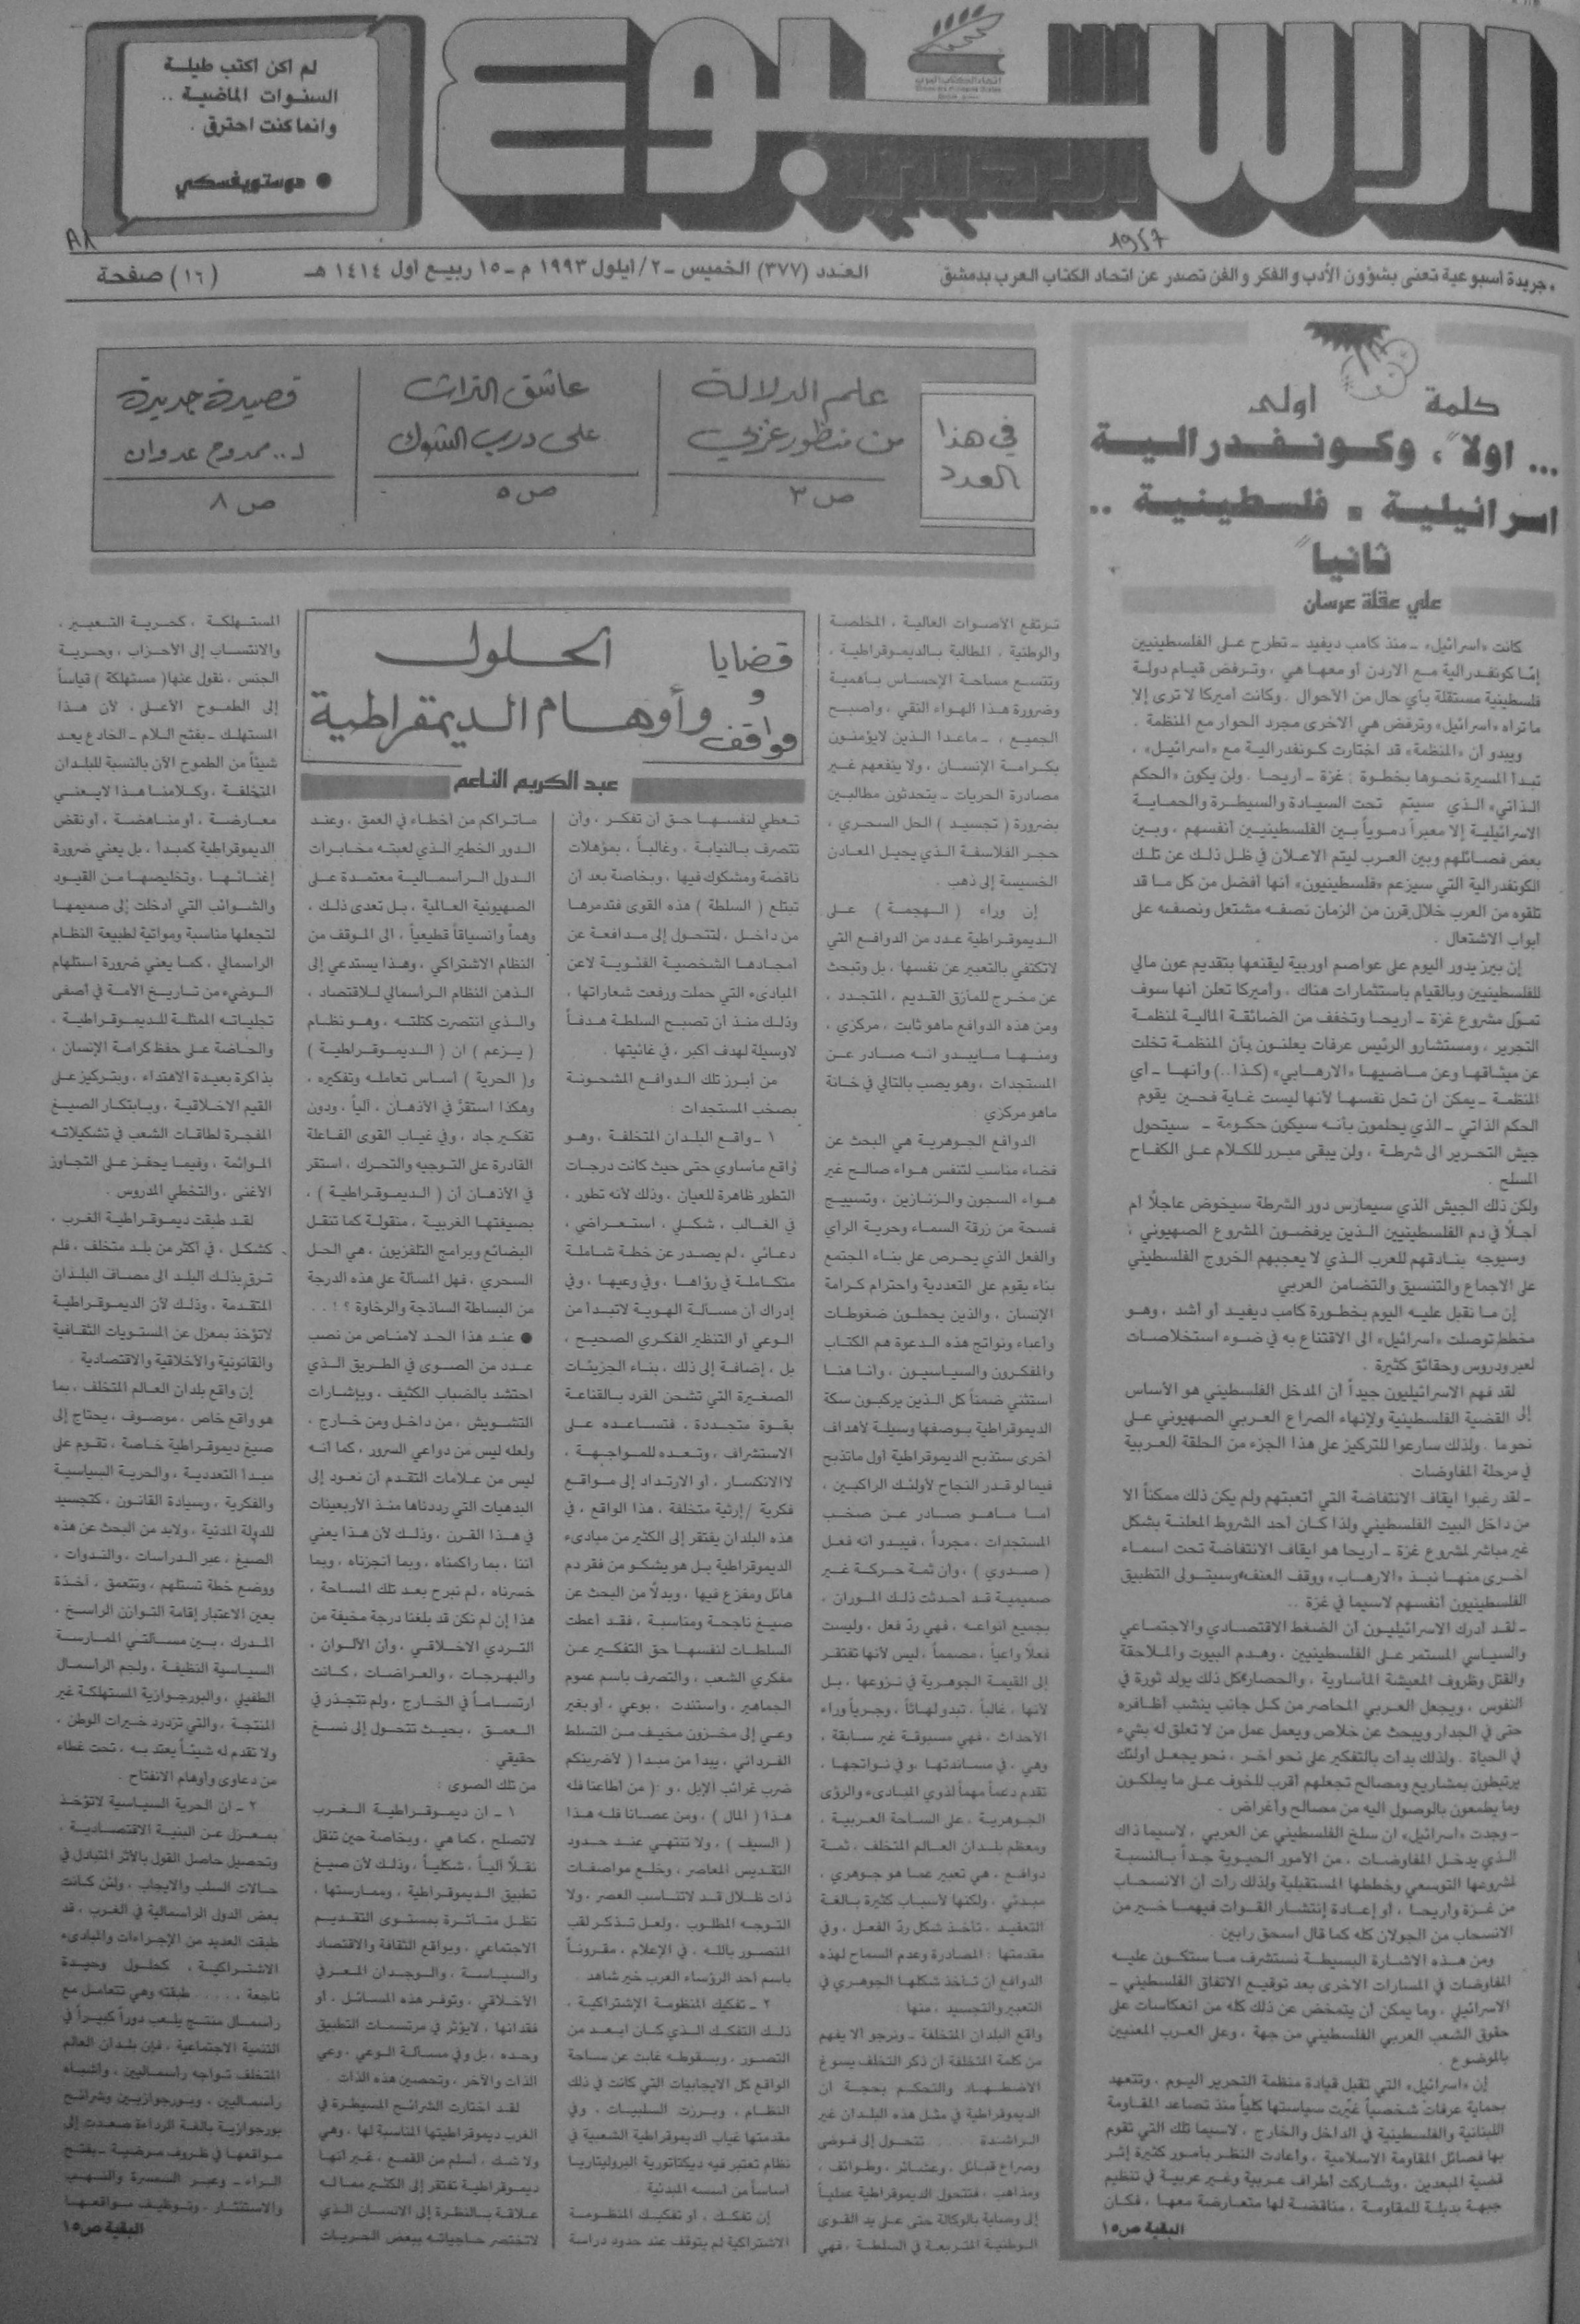 لم اكن اكتب طيلة
السنوات الماضية ..
وانما كنت احترق .
● دوستويفسكي
الاسبوع
الأدبي
اتحاد الكتاب العرب
٨٨
١٩٥٧
جريدة أسبوعية تعنى بشؤون الأدب والفكر والفن تصدر عن اتحاد الكتاب العرب بدمشق
العدد (٣٧٧) الخميس - ٢/ ايلول ١٩٩٣ م - ١٥ ربيع اول ١٤١٤ هـ
(١٦) صفحة
في هذا
العدد
علم الدلالة
من منظور عربي
ص ٣
عاشق التراث
على درب الشوك
ص ٥
قصيدة جديدة
لـ .. ممدوح عدوان
ص ٨
كلمة أولى
... اولاً ، وكونفدرالية
اسرائيلية - فلسطينية ..
ثانياً
علي عقلة عرسان
كانت «اسرائيل» - منذ كامب ديفيد - تطرح على الفلسطينيين
إمّا كونفدرالية مع الاردن أو معها هي ، وترفض قيام دولة
فلسطينية مستقلة بأي حال من الأحوال . وكانت أميركا لا ترى إلا
ما تراه «اسرائيل» وترفض هي الاخرى مجرد الحوار مع المنظمة .
ويبدو أن «المنظمة» قد اختارت كونفدرالية مع «اسرائيل» ،
تبدأ المسيرة نحوها بخطوة : غزة - أريحا . ولن يكون «الحكم
الذاتي» الذي سيتم تحت السيادة والسيطرة والحماية
الاسرائيلية إلا معبراً دموياً بين الفلسطينيين أنفسهم ، وبين
بعض فصائلهم وبين العرب ليتم الاعلان في ظل ذلك عن تلك
الكونفدرالية التي سيزعم «فلسطينيون» أنها أفضل من كل ما قد
تلقوه من العرب خلال قرن من الزمان نصفه مشتعل ونصفه على
أبواب الاشتعال .
إن بيرز يدور اليوم على عواصم اوربية ليقنعها بتقديم عون مالي
للفلسطينيين وبالقيام باستثمارات هناك ، وأميركا تعلن أنها سوف
تموّل مشروع غزة - أريحا وتخفف من الضائقة المالية لمنظمة
التحرير ، ومستشارو الرئيس عرفات يعلنون بأن المنظمة تخلت
عن ميثاقها وعن ماضيها «الارهابي» (كذا..) وأنها - أي
المنظمة - يمكن ان تحل نفسها لأنها ليست غاية فحين يقوم
الحكم الذاتي - الذي يحلمون بأنه سيكون حكومة - سيتحول
جيش التحرير الى شرطة ، ولن يبقى مبرر للكلام على الكفاح
المسلح .
ولكن ذلك الجيش الذي سيمارس دور الشرطة سيخوض عاجلاً أم
آجلاً في دم الفلسطينيين الذين يرفضون المشروع الصهيوني ،
وسيوجه بنادقهم للعرب الذي لا يعجبهم الخروج الفلسطيني
على الاجماع والتنسيق والتضامن العربي
إن ما نقبل عليه اليوم بخطورة كامب ديفيد أو أشد ، وهو
مخطط توصلت «اسرائيل» الى الاقتناع به في ضوء استخلاصات
لعبر ودروس وحقائق كثيرة .
لقد فهم الاسرائيليون جيداً أن المدخل الفلسطيني هو الأساس
إلى القضية الفلسطينية ولإنهاء الصراع العربي الصهيوني على
نحو ما . ولذلك سارعوا للتركيز على هذا الجزء من الحلقة العربية
في مرحلة المفاوضات .
- لقد رغبوا ايقاف الانتفاضة التي أتعبتهم ولم يكن ذلك ممكناً الا
من داخل البيت الفلسطيني ولذا كان أحد الشروط المعلنة بشكل
غير مباشر لمشروع غزة - أريحا هو ايقاف الانتفاضة تحت اسماء
اخرى منها نبذ «الارهاب» ووقف العنف، وسيتولى التطبيق
الفلسطينيون أنفسهم لاسيما في غزة ..
- لقد أدرك الاسرائيليون أن الضغط الاقتصادي والاجتماعي
والسياسي المستمر على الفلسطينيين ، وهدم البيوت والملاحقة
والقتل وظروف المعيشة المأساوية ، والحصار، كل ذلك يولد ثورة في
النفوس ، ويجعل العربي المحاصر من كل جانب ينشب أظافره
حتى في الجدار ويبحث عن خلاص ويعمل عمل من لا تعلق له بشيء
في الحياة . ولذلك بدأت بالتفكير على نحو آخر ، نحو يجعل أولئك
يرتبطون بمشاريع ومصالح تجعلهم أقرب للخوف على ما يملكون
وما يطمعون بالوصول اليه من مصالح وأغراض .
- وجدت «اسرائيل» ان سلخ الفلسطيني عن العربي ، لاسيما ذاك
الذي يدخل المفاوضات ، من الأمور الحيوية جداً بالنسبة
لمشروعها التوسعي وخططها المستقبلية ولذلك رأت أن الانسحاب
من غزة وأريحا ، أو إعادة إنتشار القوات فيهما خير من
الانسحاب من الجولان كله كما قال اسحق رابين .
ومن هذه الاشارة البسيطة نستشرف ما ستكون عليه
المفاوضات في المسارات الاخرى بعد توقيع الاتفاق الفلسطيني -
الاسرائيلي ، وما يمكن أن يتمخض عن ذلك كله من انعكاسات على
حقوق الشعب العربي الفلسطيني من جهة ، وعلى العرب المعنيين
بالموضوع .
أن «اسرائيل» التي تقبل قيادة منظمة التحرير اليوم ، وتتعهد
بحماية عرفات شخصياً غيّرت سياستها كلياً منذ تصاعد المقاومة
اللبنانية والفلسطينية في الداخل والخارج ، لاسيما تلك التي تقوم
بها فصائل المقاومة الاسلامية ، وأعادت النظر بأمور كثيرة إثر
قضية المبعدين ، وشاركت أطراف عربية وغير عربية في تنظيم
جبهة بديلة للمقاومة ، مناقضة لها متعارضة معها ، فكان
البقية ص١٥
قضايا
و
مواقف
الحلول
وأوهام الديمقراطية
عبد الكريم الناعم
ترتفع الأصوات العالية ، المخلصة
والوطنية ، المطالبة بالديموقراطية ،
وتتسع مساحة الإحساس بأهمية
وضرورة هذا الهواء النقي ، وأصبح
الجميع ، - ماعدا الذين لايؤمنون
بكرامة الإنسان ، ولا ينفعهم غير
مصادرة الحريات - يتحدثون مطالبين
بضرورة ( تجسيد ) الحل السحري ،
حجر الفلاسفة الذي يحيل المعادن
الخسيسة إلى ذهب .
إن وراء ( الهجمة ) على
الديموقراطية عدد من الدوافع التي
لاتكتفي بالتعبير عن نفسها ، بل وتبحث
عن مخرج للمأزق القديم ، المتجدد ،
ومن هذه الدوافع ماهو ثابت ، مركزي ،
ومنها مايبدو أنه صادر عن
المستجدات ، وهو يصب بالتالي في خانة
ماهو مركزي :
الدوافع الجوهرية هي البحث عن
فضاء مناسب لتنفس هواء صالح غير
هواء السجون والزنازين ، وتسييج
فسحة من زرقة السماء وحرية الرأي
والفعل الذي يحرص على بناء المجتمع
بناء يقوم على التعددية واحترام كرامة
الإنسان ، والذين يحملون ضغوطات
وأعباء ونواتج هذه الدعوة هم الكتاب
والمفكرون والسياسيون ، وأنا هنا
استثني ضمناً كل الذين يركبون سكة
الديموقراطية بوصفها وسيلة لأهداف
أخرى ستذبح الديموقراطية أول ماتذبح
فيما لو قدر النجاح لأولئك الراكبين ،
أما ماهو صادر عن صخب
المستجدات ، مجرداً ، فيبدو أنه فعل
( صدوي ) ، وأن ثمة حركة غير
صميمية قد أحدثت ذلك الموران ،
بجميع أنواعه ، فهي ردّ فعل ، وليست
فعلاً واعياً ، مصمماً ، ليس لأنها تفتقر
إلى القيمة الجوهرية في نزوعها ، بل
لأنها ، غالباً ، تبدو لهاثاً ، وجرياً وراء
الأحداث ، فهي مسبوقة غير سابقة ،
وهي ، في مساندتها ، وفي نواتجها ،
تقدم دعماً مهماً لذوي المبادىء والرؤى
الجوهرية ، على الساحة العربية ،
ومعظم بلدان العالم المتخلف ، ثمة
دوافع ، هي تعبير عما هو جوهري ،
مبدئي ، ولكنها لأسباب كثيرة بالغة
التعقيد ، تأخذ شكل ردّ الفعل ، وفي
مقدمتها : المصادرة وعدم السماح لهذه
الدوافع أن تأخذ شكلها الجوهري في
التعبير والتجسيد ، منها :
واقع البلدان المتخلفة - ونرجو ألا يفهم
من كلمة المتخلفة أن ذكر التخلف يسوغ
الاضطهاد والتحكم بحجة أن
الديموقراطية في مثل هذه البلدان غير
الراشدة ..... تتحول إلى فوضى
وصراع قبائل ، وعشائر ، وطوائف ،
ومذاهب ، فتتحول الديموقراطية عملياً
إلى وصاية بالوكالة حتى على يد القوى
الوطنية المتربعة في السلطة ، فهي
تعطي لنفسها حق أن تفكر ، وأن
تتصرف بالنيابة ، وغالباً ، بمؤهلات
ناقصة ومشكوك فيها ، وبخاصة بعد أن
تبتلع ( السلطة ) هذه القوى فتدمرها
من داخل ، لتتحول إلى مدافعة عن
أمجادها الشخصية الفئوية لاعن
المبادىء التي حملت ورفعت شعاراتها ،
وذلك منذ أن تصبح السلطة هدفاً
لاوسيلة لهدف أكبر ، في غائيتها .
من أبرز تلك الدوافع المشحونة
بصخب المستجدات :
١ - واقع البلدان المتخلفة ، وهو
واقع مأساوي حتى حيث كانت درجات
التطور ظاهرة للعيان ، وذلك لأنه تطور ،
في الغالب ، شكلي ، استعراضي ،
دعائي ، لم يصدر عن خطة شاملة
متكاملة في رؤاها ، وفي وعيها ، وفي
إدراك أن مسألة الهوية لاتبدأ من
الوعي أو التنظير الفكري الصحيح ،
بل ، إضافة إلى ذلك ، بناء الجزيئات
الصغيرة التي تشحن الفرد بالقناعة
بقوة متجددة ، فتساعده على
الاستشراف ، وتعده للمواجهة ،
لاالانكسار ، أو الارتداد إلى مواقع
فكرية / إرثية متخلفة ، هذا الواقع ، في
هذه البلدان يفتقر إلى الكثير من مبادىء
الديموقراطية بل هو يشكو من فقر دم
هائل ومفزع فيها ، وبدلاً من البحث عن
صيغ ناجحة ومناسبة ، فقد أعطت
السلطات لنفسها حق التفكير عن
مفكري الشعب ، والتصرف باسم عموم
الجماهير ، واستندت ، بوعي ، أو بغير
وعي إلى مخزون مخيف من التسلط
الفرداني ، يبدأ من مبدأ ( لأضربنكم
ضرب غرائب الإبل ، و : ( من أطاعنا فله
هذا ( المال ) ، ومن عصانا فله هذا
( السيف ) ، ولا تنتهي عند حدود
التقديس المعاصر ، وخلع مواصفات
ذات ظلال قد لاتناسب العصر ، ولا
التوجه المطلوب ، ولعل تذكر لقب
المنصور بالله ، في الإعلام ، مقروناً
باسم أحد الرؤساء العرب خير شاهد .
٢ - تفكيك المنظومة الإشتراكية ،
ذلك التفكك الذي كان أبعد من
التصور ، وبسقوطه غابت عن ساحة
الواقع كل الايجابيات التي كانت في ذلك
النظام ، وبرزت السلبيات ، وفي
مقدمتها غياب الديموقراطية الشعبية في
نظام تعتبر فيه ديكتاتورية البروليتاريا
أساساً من أسسه المبدئية
إن تفكك ، أو تفكيك المنظومة
الاشتراكية لم يتوقف عند حدود دراسة
ماتراكم من أخطاء في العمق ، وعند
الدور الخطير الذي لعبته مخابرات
الدول الرأسمالية معتمدة على
الصهيونية العالمية ، بل تعدى ذلك ،
وهماً وانسياقاً قطيعياً ، الى الموقف من
النظام الاشتراكي ، وهذا يستدعي إلى
الذهن النظام الرأسمالي للاقتصاد ،
والذي انتصرت كتلته ، وهو نظام
( يزعم ) أن ( الديموقراطية )
و( الحرية ) أساس تعامله وتفكيره ،
وهكذا استقرّ في الأذهان ، آلياً ، ودون
تفكير جاد ، وفي غياب القوى الفاعلة
القادرة على التوجيه والتحرك ، استقر
في الأذهان أن ( الديموقراطية ) ،
بصيغتها الغربية ، منقولة كما تنقل
البضائع وبرامج التلفزيون ، هي الحل
السحري ، فهل المسألة على هذه الدرجة
من البساطة الساذجة والرخاوة ؟ ! . .
● عند هذا الحد لامناص من نصب
عدد من الصوى في الطريق الذي
احتشد بالضباب الكثيف ، وبإشارات
التشويش ، من داخل ومن خارج ،
ولعله ليس من دواعي السرور ، كما أنه
ليس من علامات التقدم أن نعود إلى
البدهيات التي رددناها منذ الأربعينات
في هذا القرن ، وذلك لأن هذا يعني
أننا ، بما راكمناه ، وبما أنجزناه ، وبما
خسرناه ، لم نبرح بعد تلك المساحة ،
هذا إن لم نكن قد بلغنا درجة مخيفة من
التردي الاخلاقي ، وأن الألوان ،
والبهرجات ، والعراضات ، كانت
ارتساماً في الخارج ، ولم تتجذر في
العمق ، بحيث تتحول إلى نسغ
حقيقي .
من تلك الصوى :
١ - ان ديموقراطية الغرب
لاتصلح ، كما هي ، وبخاصة حين تنقل
نقلاً آلياً ، شكلياً ، وذلك لأن صيغ
تطبيق الديموقراطية ، وممارستها ،
تظل متأثرة بمستوى التقديم
الاجتماعي ، وبواقع الثقافة والاقتصاد
والسياسة ، والوجدان المعرفي
الأخلاقي ، وتوفر هذه المسائل ، أو
فقدانها ، لايؤثر في مرتسمات التطبيق
وحده ، بل وفي مسألة الوعي ، وعي
الذات والآخر ، وتحصين هذه الذات
لقد اختارت الشرائح المسيطرة في
الغرب ديموقراطيتها المناسبة لها ، وهي
ولا شك ، أسلم من القمع ، غير أنها
ديموقراطية تفتقر إلى الكثير مما له
علاقة بالنظرة إلى الانسان الذي
لاتختصر حاجياته ببعض الحريات
المستهلكة ، كحرية التعبير ،
والانتساب إلى الأحزاب ، وحرية
الجنس ، نقول عنها( مستهلكة ) قياساً
إلى الطموح الأعلى ، لأن هذا
المستهلك - بفتح اللام - الخادع يعد
شيئاً من الطموح الآن بالنسبة للبلدان
المتخلفة ، وكلامنا هذا لايعني
معارضة ، أو مناهضة ، أو نقض
الديموقراطية كمبدأ ، بل يعني ضرورة
إغنائها ، وتخليصها من القيود
والشوائب التي أدخلت إلى صميمها
لتجعلها مناسبة ومواتية لطبيعة النظام
الرأسمالي ، كما يعني ضرورة استلهام
الوضيء من تاريخ الأمة في أصفى
تجلياته الممثلة للديموقراطية ،
والحاضة على حفظ كرامة الإنسان ،
بذاكرة بعيدة الاهتداء ، وبتركيز على
القيم الاخلاقية ، وبابتكار الصيغ
المفجرة لطاقات الشعب في تشكيلاته
الموائمة ، وفيما يحفز على التجاوز
الأغنى ، والتخطي المدروس .
لقد طبقت ديموقراطية الغرب ،
كشكل ، في أكثر من بلد متخلف ، فلم
ترق بذلك البلد الى مصاف البلدان
المتقدمة ، وذلك لأن الديموقراطية
لاتؤخذ بمعزل عن المستويات الثقافية
والقانونية والأخلاقية والاقتصادية .
إن واقع بلدان العالم المتخلف ، بما
هو واقع خاص ، موصوف ، يحتاج إلى
صيغ ديموقراطية خاصة ، تقوم على
مبدأ التعددية ، والحرية السياسية
والفكرية ، وسيادة القانون ، كتجسيد
للدولة المدنية ، ولابد من البحث عن هذه
الصيغ ، عبر الدراسات ، والندوات ،
ووضع خطة تستلهم ، وتتعمق ، آخذة
بعين الاعتبار إقامة التوازن الراسخ ،
المدرك ، بين مسألتي الممارسة
السياسية النظيفة ، ولجم الرأسمال
الطفيلي ، والبورجوازية المستهلكة غير
المنتجة ، والتي تزدرد خيرات الوطن ،
ولا تقدم له شيئاً يعتد به ، تحت غطاء
من دعاوى وأوهام الانفتاح .
٢ - ان الحرية السياسية لاتؤخذ
بمعزل عن البنية الاقتصادية ،
وتحصيل حاصل القول بالأثر المتبادل في
حالات السلب والايجاب ، ولئن كانت
بعض الدول الرأسمالية في الغرب ، قد
طبقت العديد من الإجراءات والمبادىء
الاشتراكية ، كحلول وحيدة
ناجعة ، .... طبقته وهي تتعامل مع
رأسمال منتج يلعب دوراً كبيراً في
التنمية الاجتماعية ، فإن بلدان العالم
المتخلف تواجه رأسماليين ، وأشباه
رأسماليين ، وبورجوازيين وشرائح
بورجوازية بالغة الرداءة صعدت إلى
مواقعها في ظروف مرضية - بفتح
الراء - وعبر السمسرة والنهب
والاستئثار ، وتوظيف مواقعها
البقية ص١٥